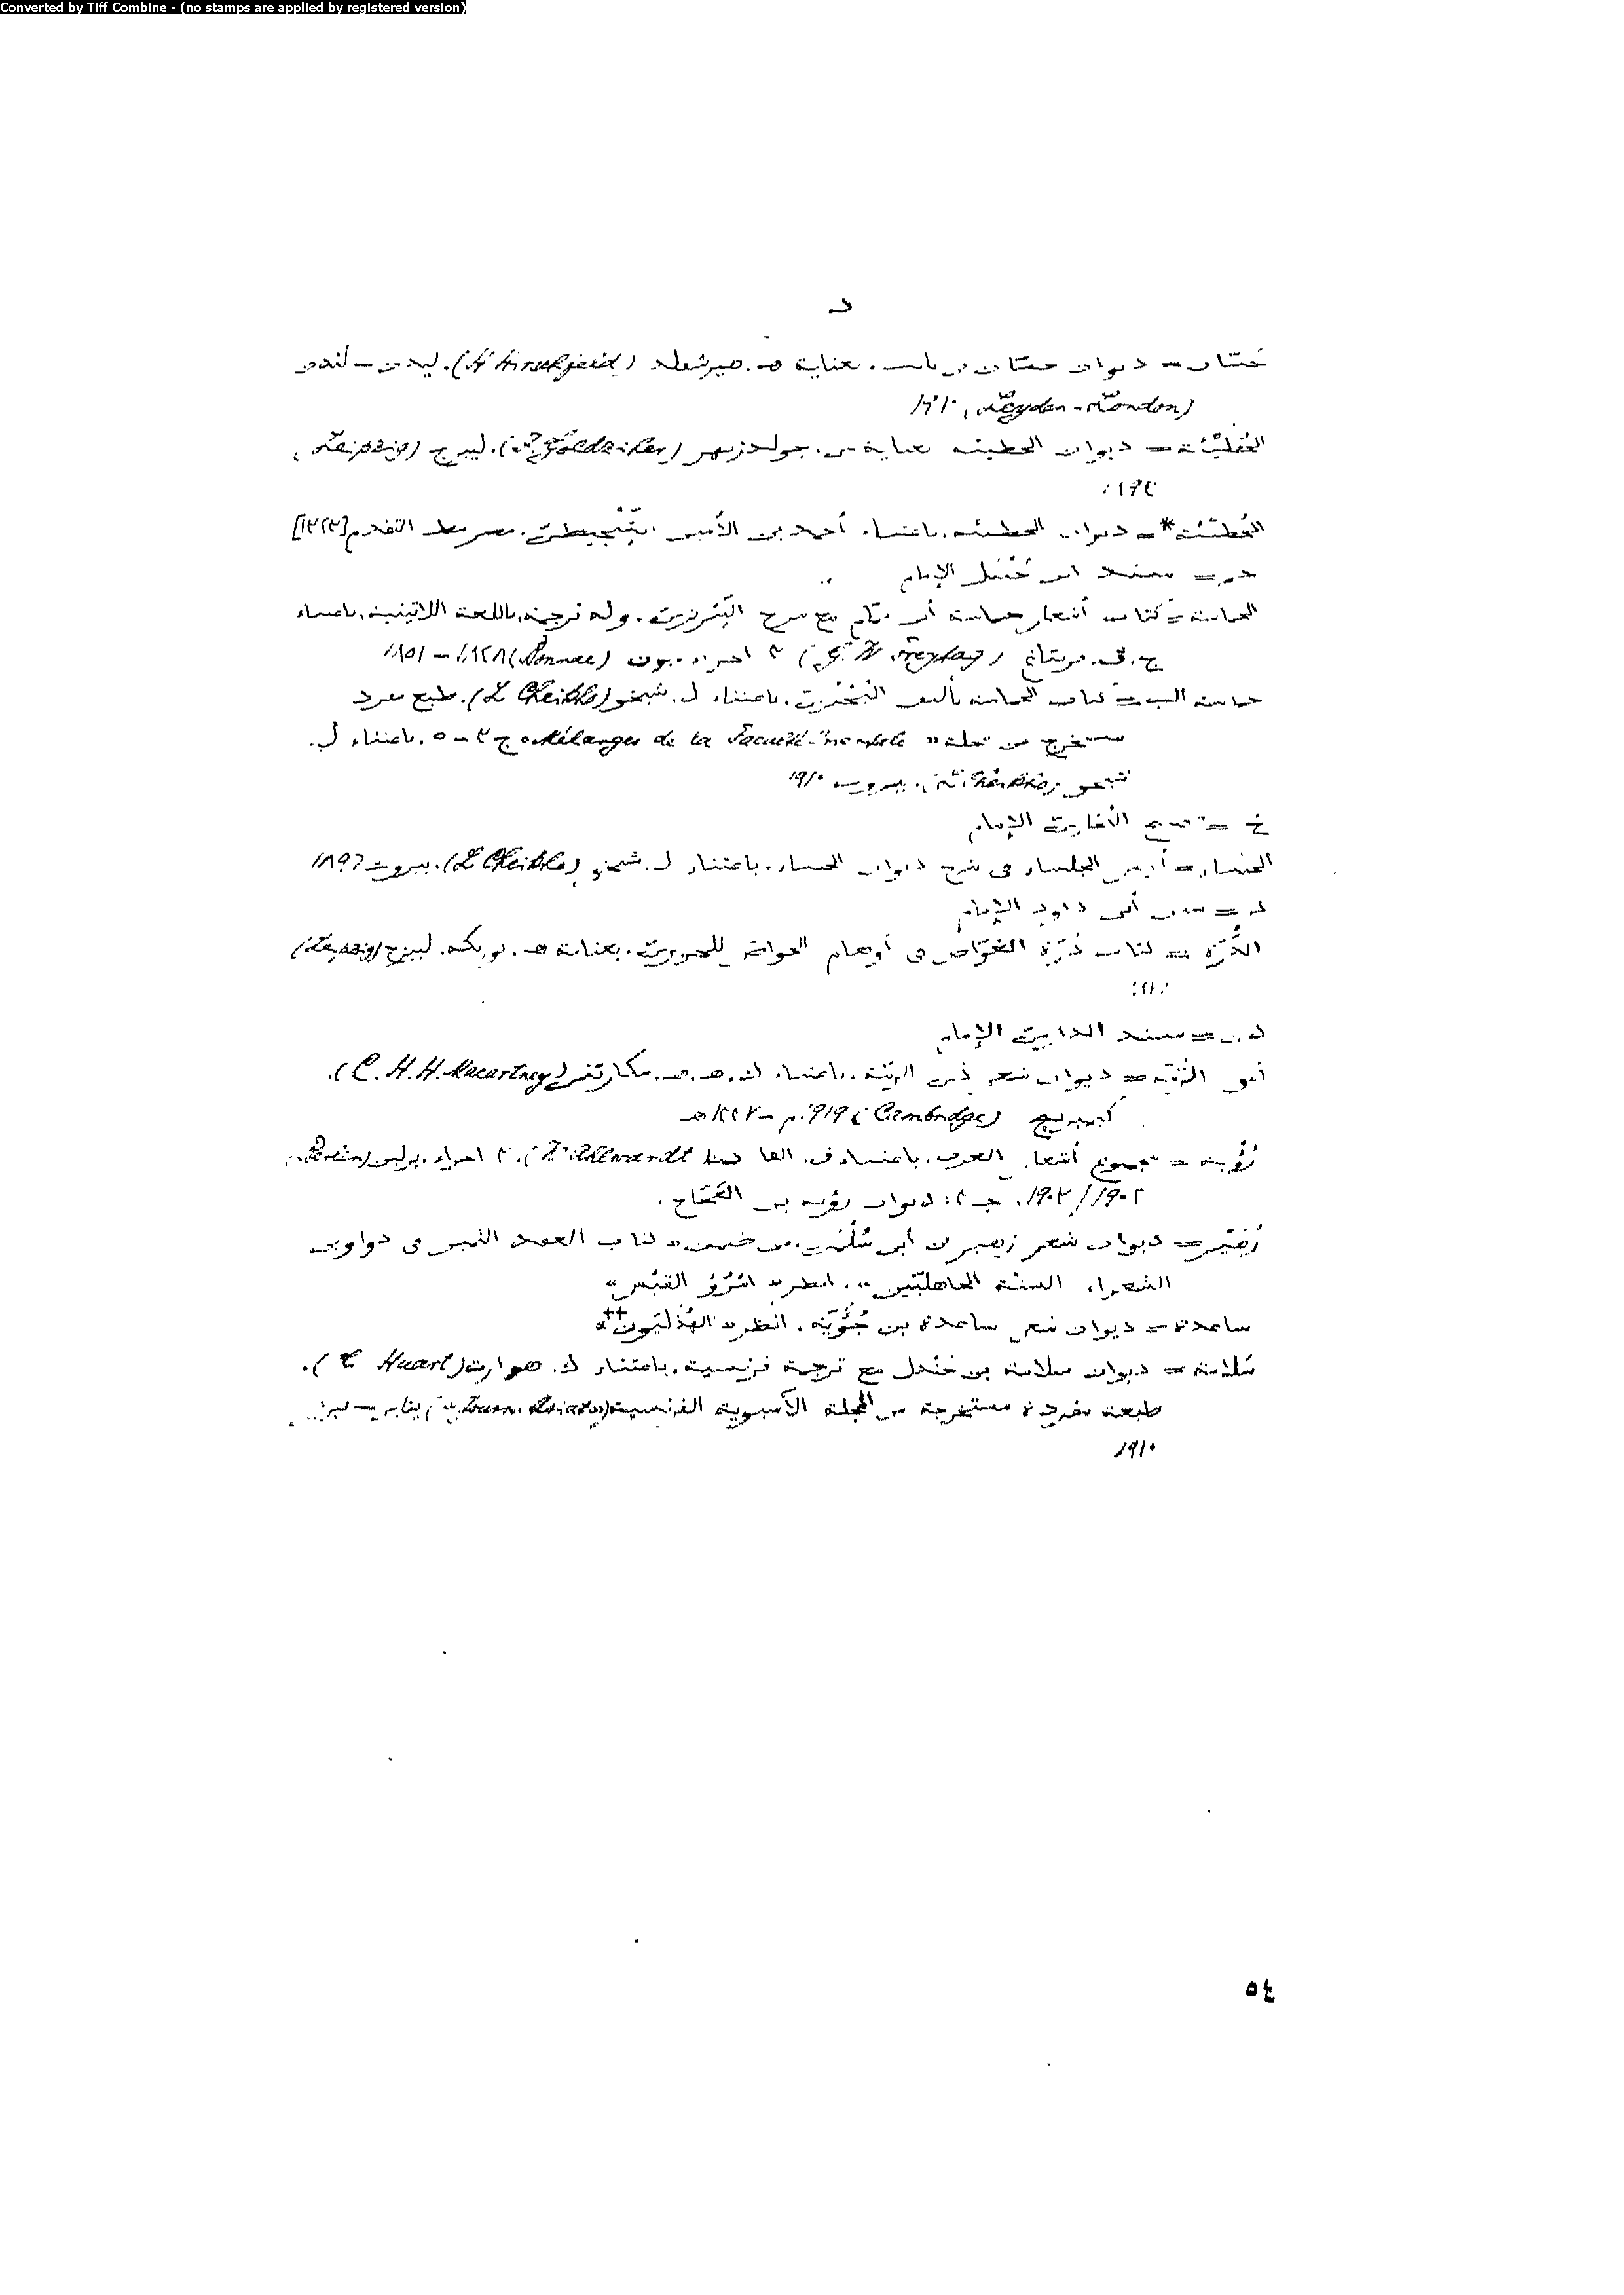 Converted by Tiff Combine - (no stamps are applied by registered version)
د
حسّان = ديوان حسّان بن ثابت. بعناية هـ. هيرشفلد (H Hirschfeld). ليدن – لندن
(Leyden - London)
الحُطَيْئة = ديوان الحطيئة بعناية جولدزيهر (Goldziher). ليبزج (Leipzig،
الحُطَيْئة* = ديوان الحطيئة. باعتناء أحمد بن الأمين الشِّنْجيطي. مصر مط التقدم [١٣٢٣]
= مسند ابن حَنْبَل الإمام
الحماسة = كتاب أشعار حماسة أبي تمّام مع شرح التِبْريزي. وله ترجمة باللغة اللاتينية. باعتناء
ج. ف. فريتاغ (G. W. Freytag) ٢ أجزاء. بون (Bonnae) ١٨٢٨ – ١٨٥١
حماسة البـ = كتاب الحماسة تأليف البُحْتُري. باعتناء ل. شيخو (L Cheikho). طبع مفرد
مستخرج من مجلة « Mélanges de la Faculté Orientale » ج ٣ – ٥. باعتناء ل.
شيخو (L. Cheikho). بيروت ١٩١٠
خ = الإمام
الخنساء = أنيس الجلساء في شرح ديوان الخنساء. باعتناء ل. شيخو (L Cheikho). بيروت ١٨٩٦
د = سنن أبي داود الإمام
الدُّرّة = كتاب دُرّة الغوّاص في أوهام الخواصّ للحريري. بعناية هـ. توربكه. ليبزج (Leipzig)
= مسند الدارمي الإمام
ذو الرُّمّة = ديوان شعر ذي الرمّة. باعتناء ك. هـ. هـ. مكارتني (C. H. H. Macartney).
كيمبريج (Cambridge) ١٩١٩م – هـ
رُؤْبة = مجموع أشعار العرب. باعتناء ف. (Ahlwardt). ٢ أجزاء. برلين (Berlin)
١٩٠٢/١٩٠٣. جـ ٣: ديوان رؤبة بن العَجّاج.
زُهَيْر = ديوان شعر زهير بن أبي سُلْمَى. من ضمن « كتاب العقد الثمين في دواوين
الشعراء الستّة الجاهليّين ». انظر « امْرُؤُ القَيْس »
ساعدة = ديوان شعر ساعدة بن جُؤَيّة. انظر « الهُذَلِيّون »++
سَلامة = ديوان سلامة بن جَنْدل مع ترجمة فرنسية. باعتناء ك. هوارت (C Huart).
طبعة مفردة مستخرجة من المجلة الآسيوية الفرنسية (Journ. Asiat.) يناير –
١٩١٠
٥٤